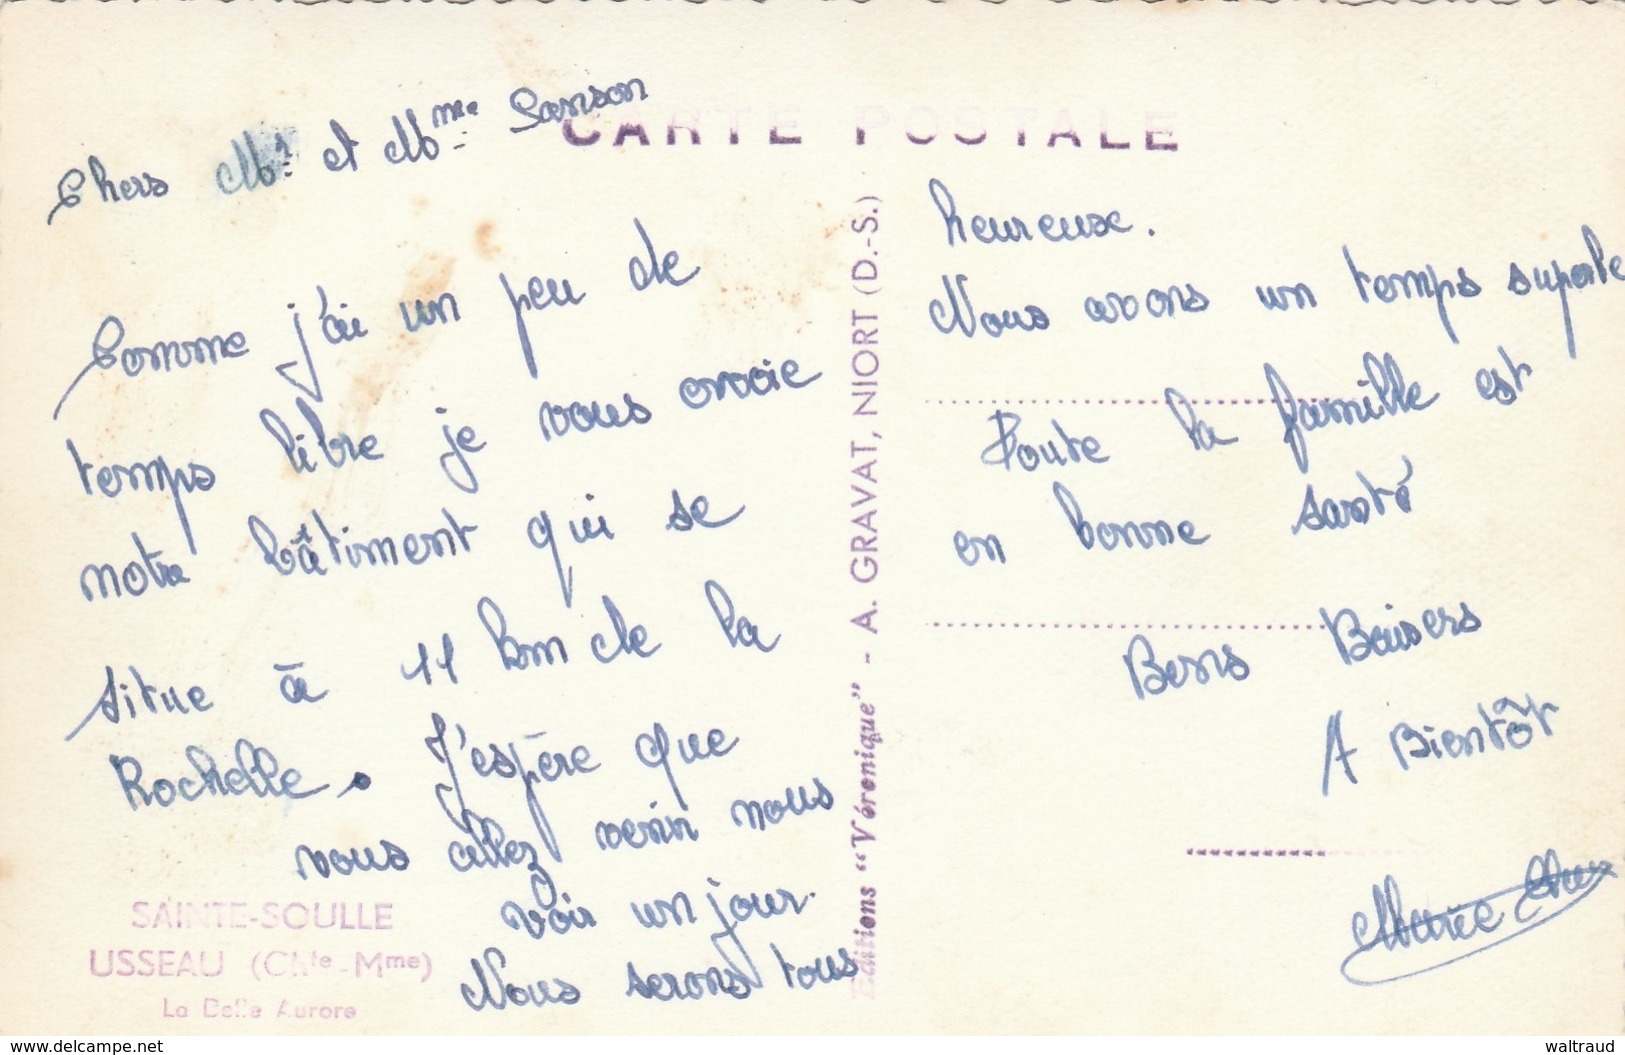 CARTE POSTALE
Chers Mr. et Mme Sanson
Comme j'ai un peu de
temps libre je vous envoie
notre bâtiment qui se
situe à 11 km de la
Rochelle. J'espère que
vous allez venir nous
voir un jour.
Nous serons tous
SAINTE-SOULLE
USSEAU (Chte-Mme)
La Belle Aurore
Editions "Véronique" - A. GRAVAT, NIORT (D.-S.)
heureuse.
Nous avons un temps superbe
Toute la famille est
en bonne santé
Bons Baisers
A Bientôt
Marie
www.delcampe.net
waltraud